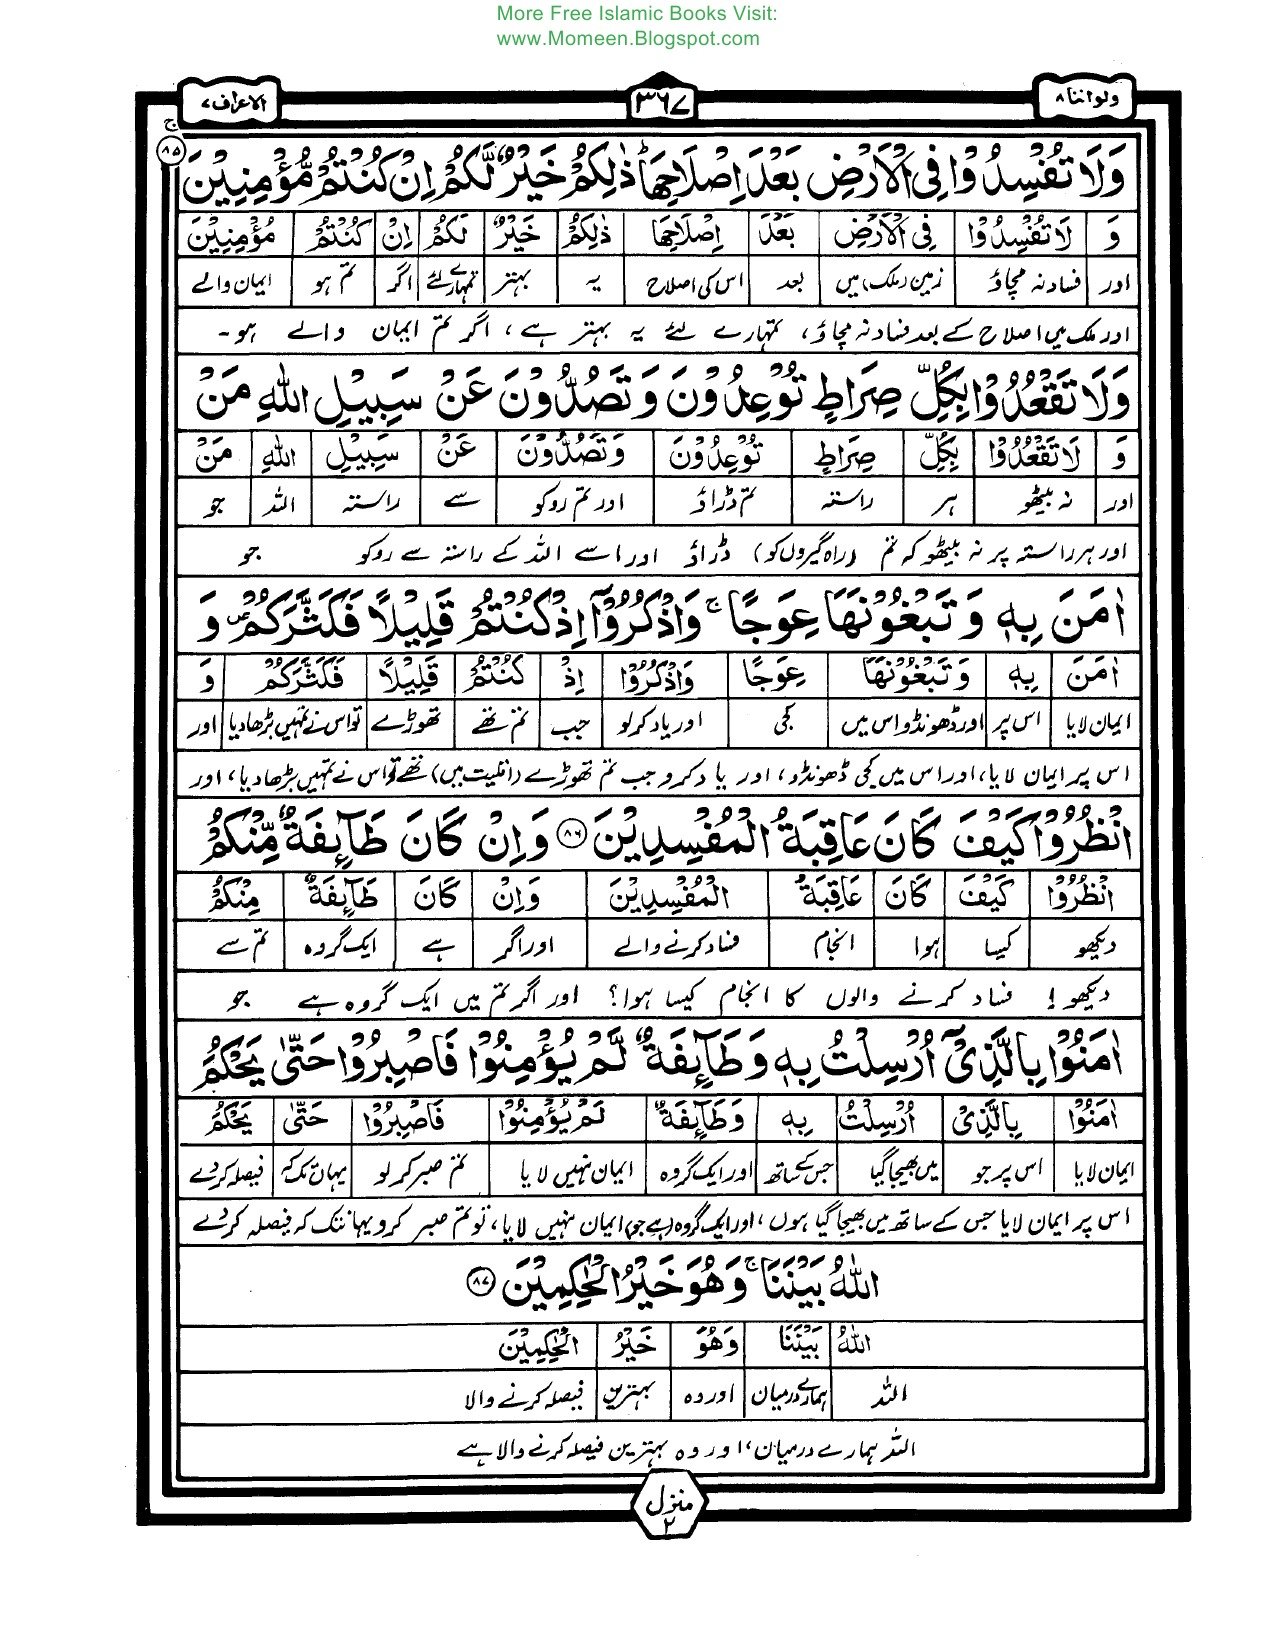 More Free Islamic Books Visit:
www.Momeen.Blogspot.com
ولواننا ۸ ۳۶۷ الاعراف ۷
وَلَا تُفْسِدُوْا فِی الْاَرْضِ بَعْدَ اِصْلَاحِهَا ؕ ذٰلِكُمْ خَیْرٌ لَّكُمْ اِنْ كُنْتُمْ مُّؤْمِنِیْنَ ۸۵ ج
وَ لَا تُفْسِدُوْا فِی الْاَرْضِ بَعْدَ اِصْلَاحِهَا ذٰلِكُمْ خَیْرٌ لَكُمْ اِنْ كُنْتُمْ مُؤْمِنِیْنَ
اور فساد نہ مچاؤ زمین (ملک) میں بعد اس کی اصلاح یہ بہتر تمہارے لئے اگر تم ہو ایمان والے
اور ملک میں اصلاح کے بعد فساد نہ مچاؤ، تمہارے لئے یہ بہتر ہے، اگر تم ایمان والے ہو۔
وَلَا تَقْعُدُوْا بِكُلِّ صِرَاطٍ تُوْعِدُوْنَ وَ تَصُدُّوْنَ عَنْ سَبِیْلِ اللّٰهِ مَنْ
وَ لَا تَقْعُدُوْا بِكُلِّ صِرَاطٍ تُوْعِدُوْنَ وَتَصُدُّوْنَ عَنْ سَبِیْلِ اللّٰهِ مَنْ
اور نہ بیٹھو ہر راستہ تم ڈراؤ اور تم روکو سے راستہ اللہ جو
اور ہر راستہ پر نہ بیٹھو کہ تم (راہگیروں کو) ڈراؤ اور اسے اللہ کے راستہ سے روکو جو
اٰمَنَ بِهٖ وَ تَبْغُوْنَهَا عِوَجًا ۚ وَاذْكُرُوْۤا اِذْ كُنْتُمْ قَلِیْلًا فَكَثَّرَكُمْ ۪ وَ
اٰمَنَ بِهٖ وَ تَبْغُوْنَهَا عِوَجًا وَاذْكُرُوْا اِذْ كُنْتُمْ قَلِیْلًا فَكَثَّرَكُمْ وَ
ایمان لایا اس پر اور ڈھونڈو اس میں کجی اور یاد کرلو جب تم تھے تھوڑے تو اس نے تمہیں بڑھا دیا اور
اس پر ایمان لایا، اور اس میں کجی ڈھونڈو، اور یاد کرو جب تم تھوڑے (اقلیت میں) تھے تو اس نے تمہیں بڑھا دیا، اور
انْظُرُوْا كَیْفَ كَانَ عَاقِبَةُ الْمُفْسِدِیْنَ ۸۶ وَاِنْ كَانَ طَآىِٕفَةٌ مِّنْكُمْ
انْظُرُوْا كَیْفَ كَانَ عَاقِبَةُ الْمُفْسِدِیْنَ وَاِنْ كَانَ طَآىِٕفَةٌ مِنْكُمْ
دیکھو کیسا ہوا انجام فساد کرنے والے اور اگر ہے ایک گروہ تم سے
دیکھو! فساد کرنے والوں کا انجام کیسا ہوا؟ اور اگر تم میں ایک گروہ ہے جو
اٰمَنُوْا بِالَّذِیْۤ اُرْسِلْتُ بِهٖ وَ طَآىِٕفَةٌ لَّمْ یُؤْمِنُوْا فَاصْبِرُوْا حَتّٰى یَحْكُمَ
اٰمَنُوْا بِالَّذِیْ اُرْسِلْتُ بِهٖ وَ طَآىِٕفَةٌ لَمْ یُؤْمِنُوْا فَاصْبِرُوْا حَتّٰى یَحْكُمَ
ایمان لایا اس پر جو میں بھیجا گیا جس کے ساتھ اور ایک گروہ ایمان نہیں لایا تم صبر کر لو یہاں تک کہ فیصلہ کر دے
اس پر ایمان لایا جس کے ساتھ میں بھیجا گیا ہوں، اور ایک گروہ (ہے جو) ایمان نہیں لایا، تو تم صبر کرو یہانتک کہ فیصلہ کر دے
اللّٰهُ بَیْنَنَا ۚ وَهُوَ خَیْرُ الْحٰكِمِیْنَ ۸۷
اللّٰهُ بَیْنَنَا وَهُوَ خَیْرُ الْحٰكِمِیْنَ
اللہ ہمارے درمیان اور وہ بہترین فیصلہ کرنے والا
اللہ ہمارے درمیان، اور وہ بہترین فیصلہ کرنے والا ہے
منزل
۲